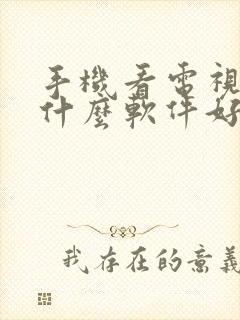 手機看電視
什麼軟件好
我存在的意義